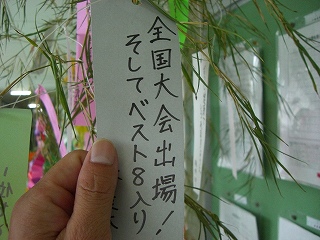 全国大会出場!
そしてベスト8入り